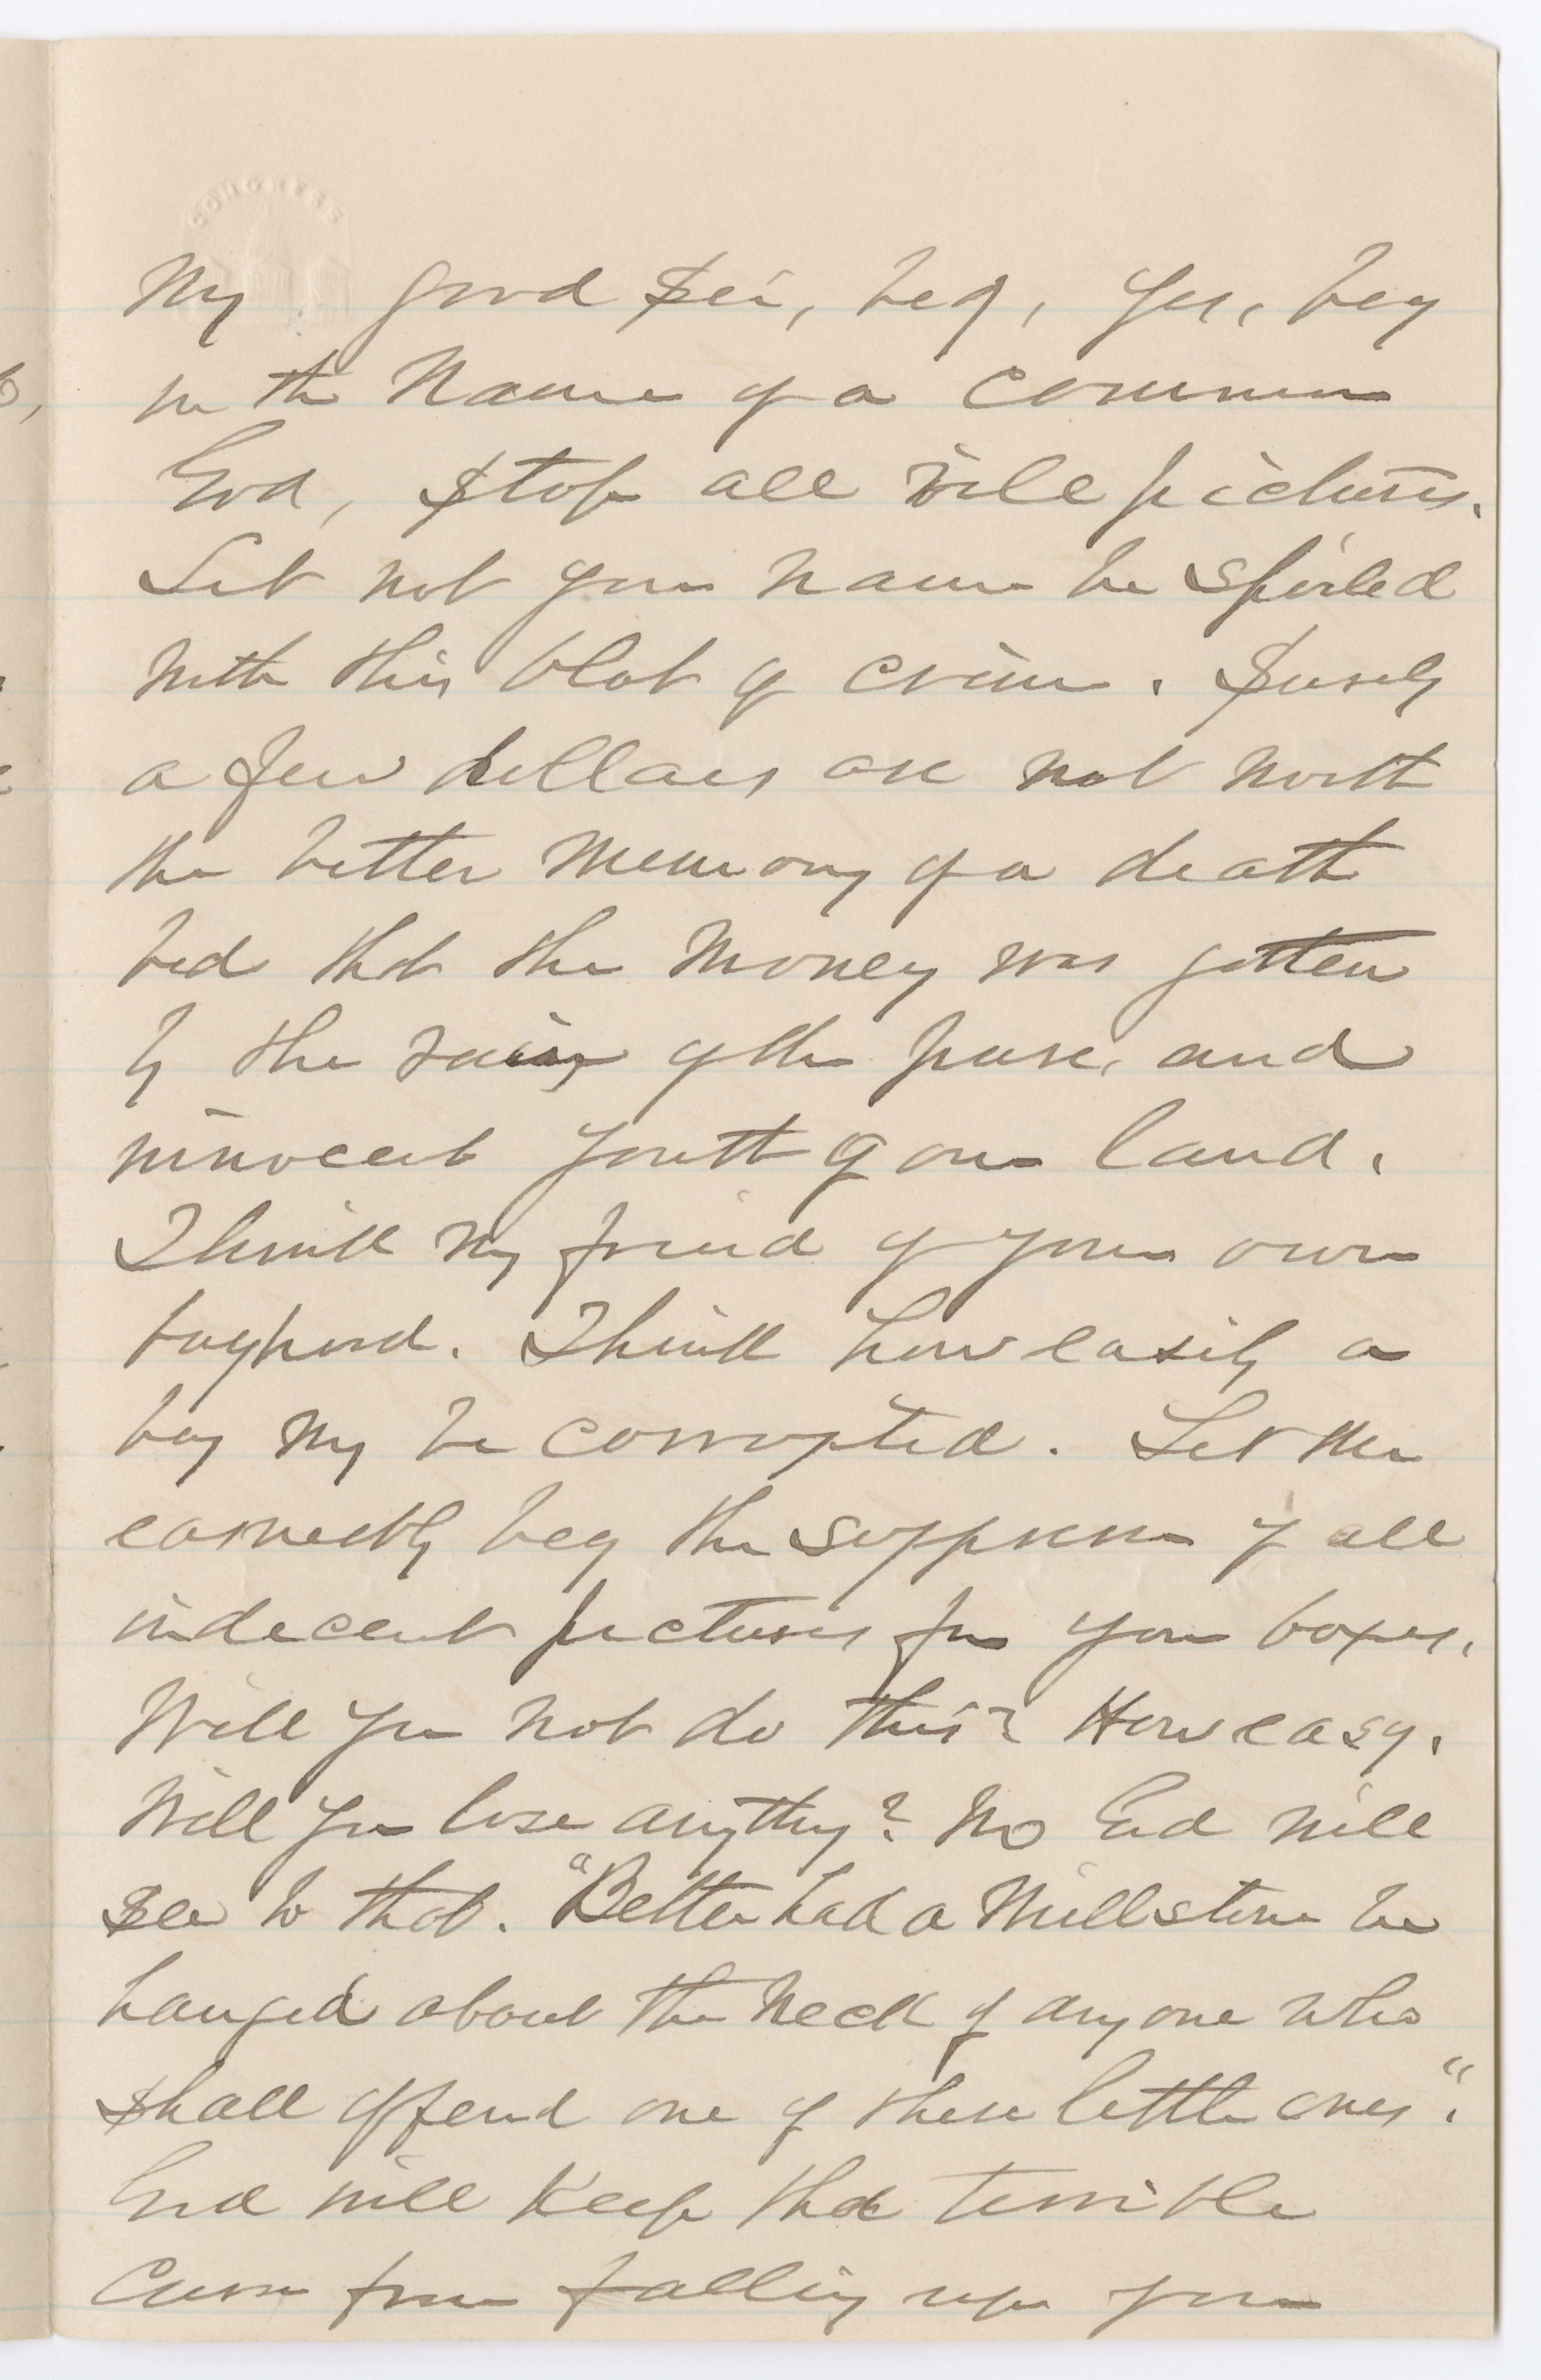 CONGRESS
My good Sir, beg, yes, beg
in the Name of a common
God, stop all vile pictures.
Let not your name be spoiled
with this blot of crime. Surely
a few dollars are not worth
the bitter memory of a death
bed that the money was gotten
by the ruin of the pure, and
innocent youth of our land.
Think my friend of your own
boyhood. Think how easily a
boy may be corrupted. Let me
earnestly beg the suppression of all
indecent pictures from your boxes.
Will you not do this? How easy.
Will you lose anything? No God will
see to that. "Better had a Millstone be
hanged about the Neck of anyone who
shall offend one of these little ones".
God will keep that terrible
Curse from falling upon your